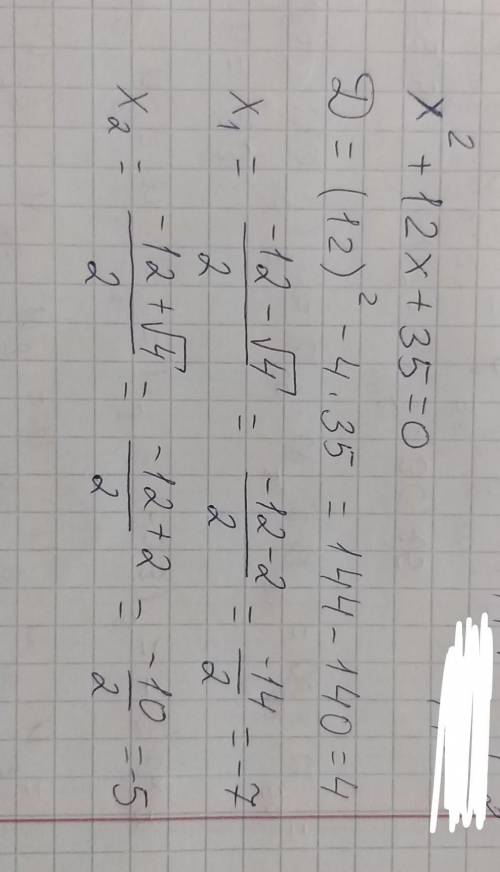 x² + 12x + 35 = 0
D = (12)² - 4 · 35 = 144 - 140 = 4
x₁ = (-12 - √4)/2 = (-12 - 2)/2 = -14/2 = -7
x₂ = (-12 + √4)/2 = (-12 + 2)/2 = -10/2 = -5